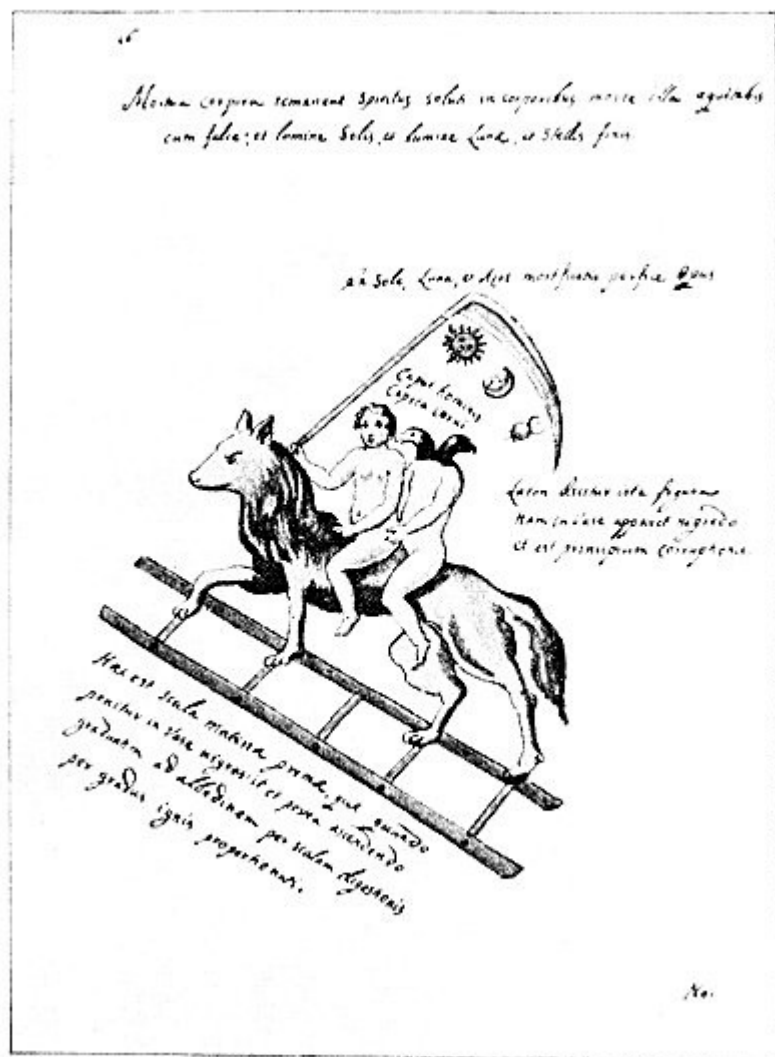 26
Mortua corpora remanent spiritus soluti in corporibus morte illa equitabis
cum falce; et lumine Solis, et lumine Lunæ, et Stellis finis.
Sole, Luna, et
Caput hominis
Capita corui
Laton dicitur ista figura
Nam in vase apparet nigredo
et est principium corruptionis
Hæc est scala materia prima, quæ quando
ponitur in vase nigrescit et postea ascendendo
gradatim ad albedinem per scalam digestionis
per gradus ignis proportionati.